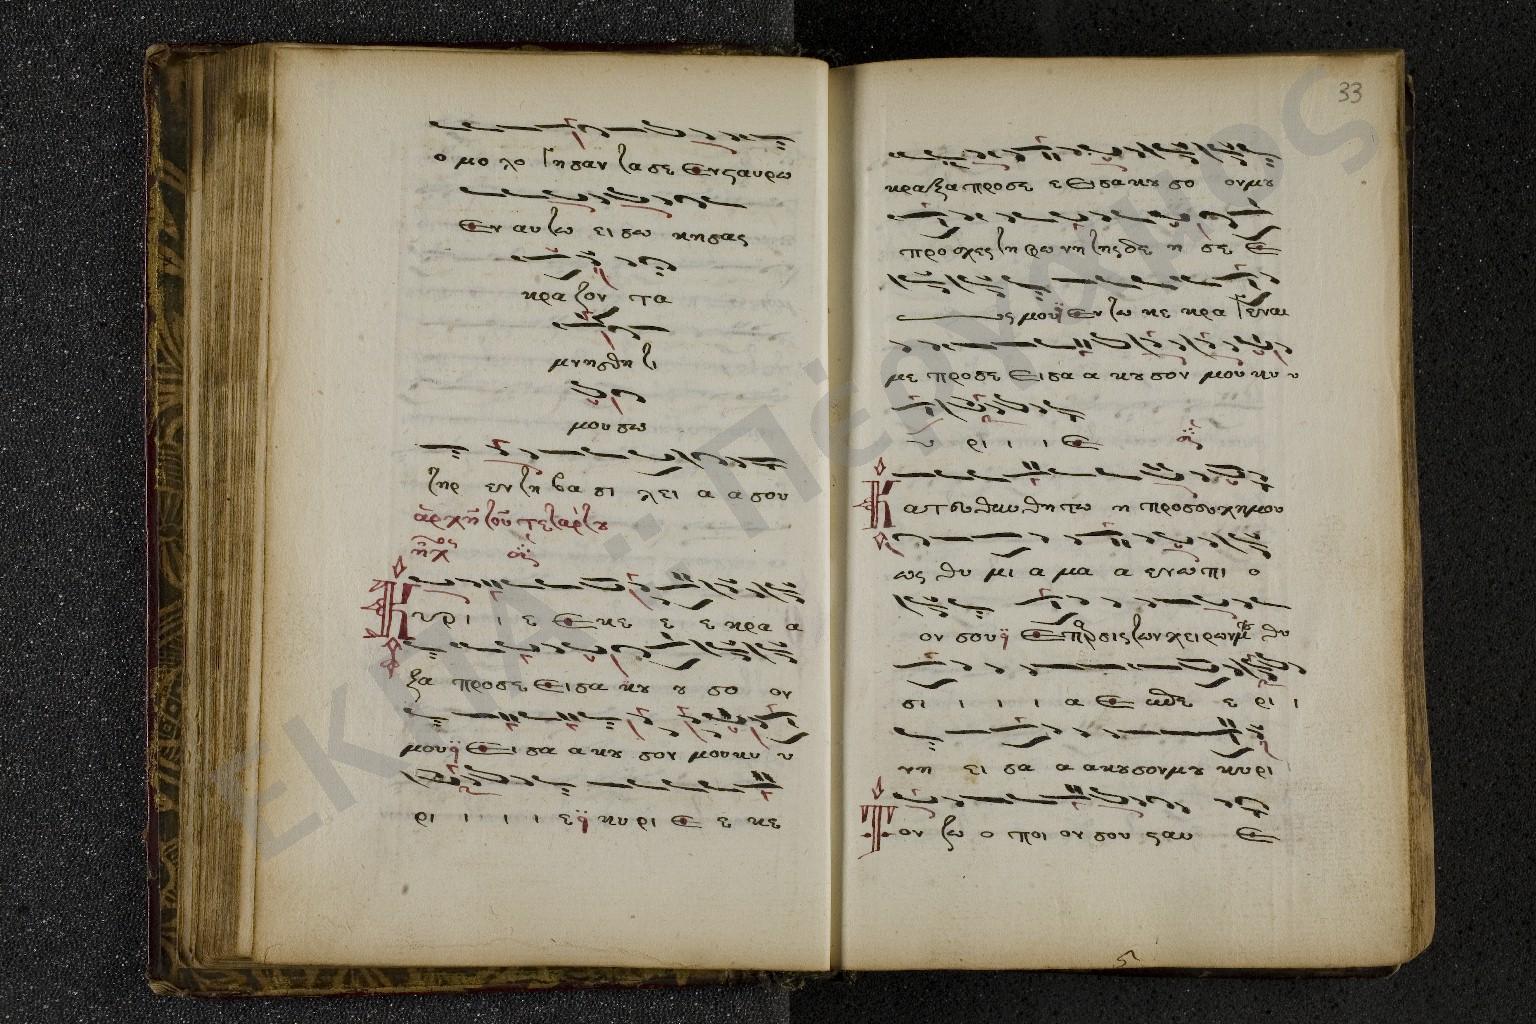 ο μο λο γη σαν τα σε Εν σταυρω
Εν αυ τω ει σω κη σας
κρα ζον τα
μνησθη τι
μου σω
τηρ εν τη βα σι λει α α σου
ἀρχὴ τοῦ τετάρτου
ἦχος
Κυ ρι ι ε Ε κε ε ε κρα α
ξα προσε Ει σα κου ου σο ον
μου Ει σα α κου σον μου κυ υ
ρι ι ι ι ι ε κυ ρι Ε ε κε
33
κραξα προσε ε Ε σα κου σο ον μου
προσχες τη φω νη της δε η σε Ε
ως μου Εν τω κε κρα γεναι
με προσε Ει σα α κου σον μου κυ υ
υ ρι ι ι Ε
Κ ατευθυνθητω η προσευχη μου
ως θυ μι α μα α ενωπι ο
ον σου Επαρσις των χειρων μου θυ
σι ι ι ι α Ε σπε ε ρι ι
νη ει σα α ακουσον μου κυρι
Τ ον ζω ο ποι ον σου σταυ Ε
ΕΚΠΑ: Πέργαμος